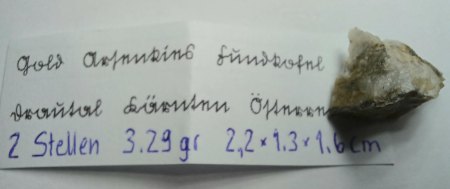 Gold Arsenkies Fundkofel
Drautal Kärnten Österre
2 Stellen 3.29 gr 2,2 x 1.3 x 1.6 cm